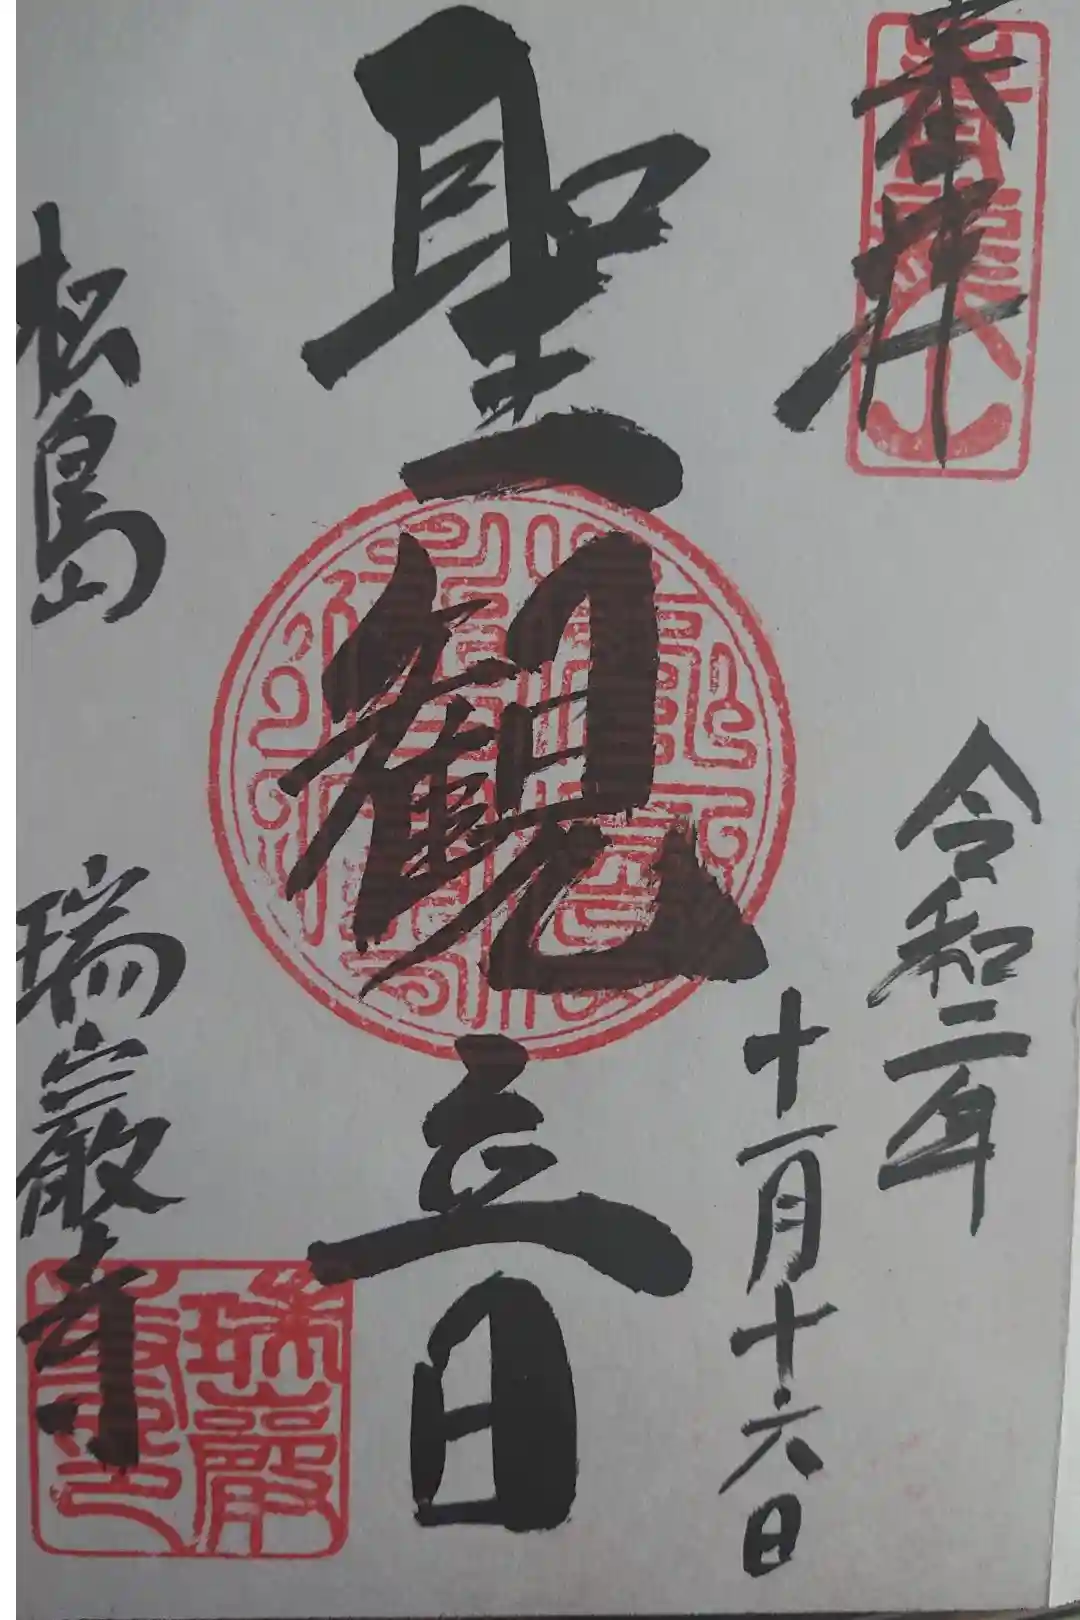 奉拝
令和二年
十一月十六日
聖観音
松島
瑞巌寺